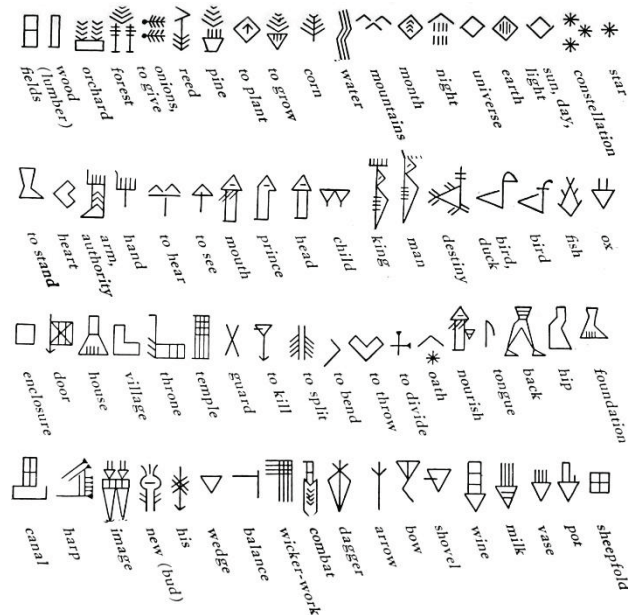 fields
wood
(lumber)
orchard
forest
onions,
to give
reed
pine
to plant
to grow
corn
water
mountains
month
night
universe
earth
sun, day,
light
constellation
star
to stand
heart
arm,
authority
hand
to hear
to see
mouth
prince
head
child
king
man
destiny
bird,
duck
bird
fish
ox
enclosure
door
house
village
throne
temple
guard
to kill
to split
to bend
to throw
to divide
oath
nourish
tongue
back
hip
foundation
canal
harp
image
new (bud)
his
wedge
balance
wicker-work
combat
dagger
arrow
bow
shovel
wine
milk
vase
pot
sheepfold